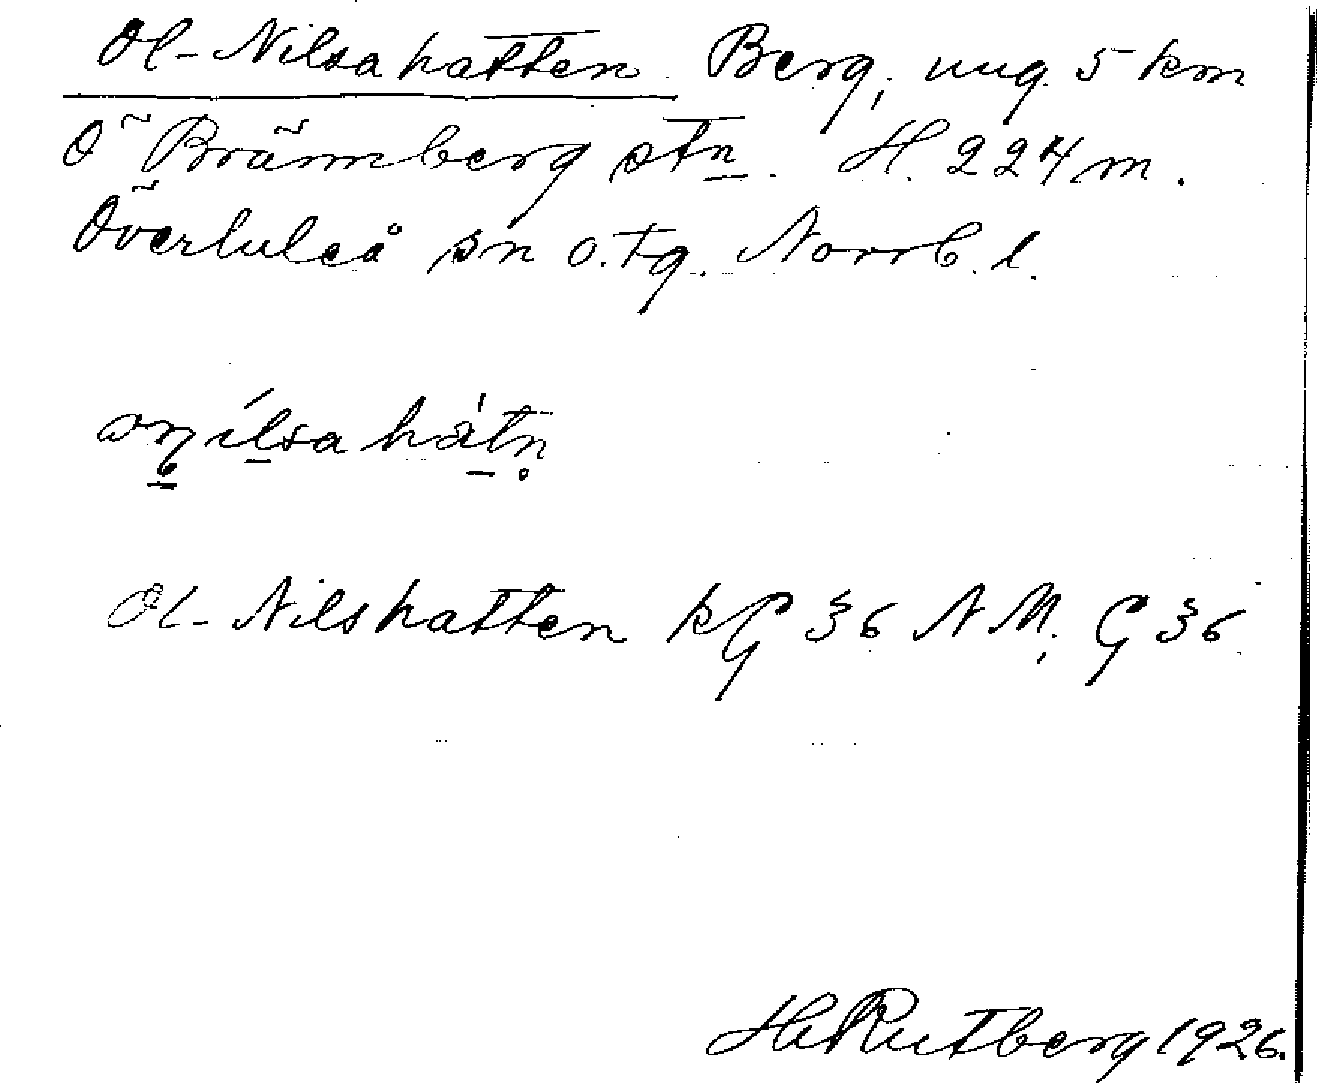 Ol-Nilsahatten. Berg, ung. 5 km
Ö Brännberg stn. H. 224 m.
Överluleå sn o. tg. Norrb. l.
Ol-Nilshatten kG 36 NM; G 36
H Rutberg 1926.